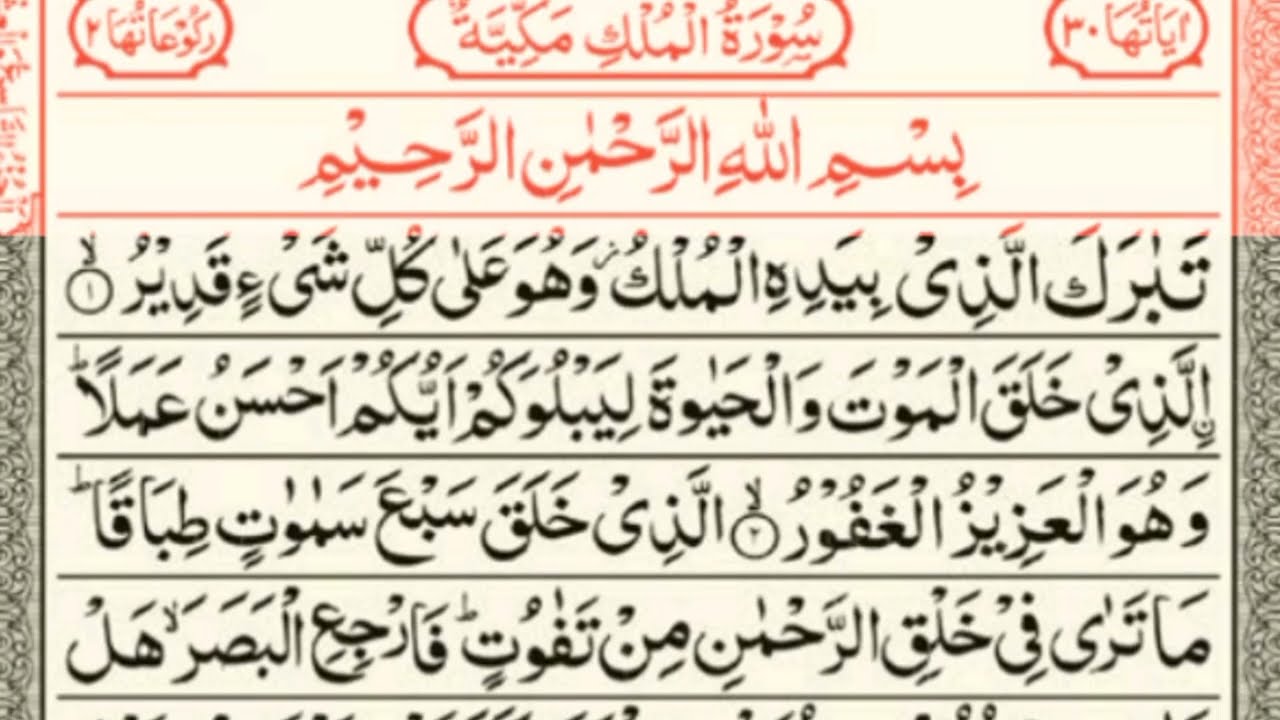 اٰيَاتُهَا ٣٠ سُوْرَةُ الْمُلْكِ مَكِّيَّةٌ رُكُوْعَاتُهَا ٢
بِسْمِ اللّٰهِ الرَّحْمٰنِ الرَّحِيْمِ
تَبٰرَكَ الَّذِىْ بِيَدِهِ الْمُلْكُ ز وَهُوَ عَلٰى كُلِّ شَىْءٍ قَدِيْرُ ۙ ١
اِۨلَّذِىْ خَلَقَ الْمَوْتَ وَالْحَيٰوةَ لِيَبْلُوَكُمْ اَيُّكُمْ اَحْسَنُ عَمَلًا ؕ
وَهُوَ الْعَزِيْزُ الْغَفُوْرُ ۙ ٢ الَّذِىْ خَلَقَ سَبْعَ سَمٰوٰتٍ طِبَاقًا ؕ
مَا تَرٰى فِىْ خَلْقِ الرَّحْمٰنِ مِنْ تَفٰوُتٍ ؕ فَارْجِعِ الْبَصَرَ ۙ هَلْ